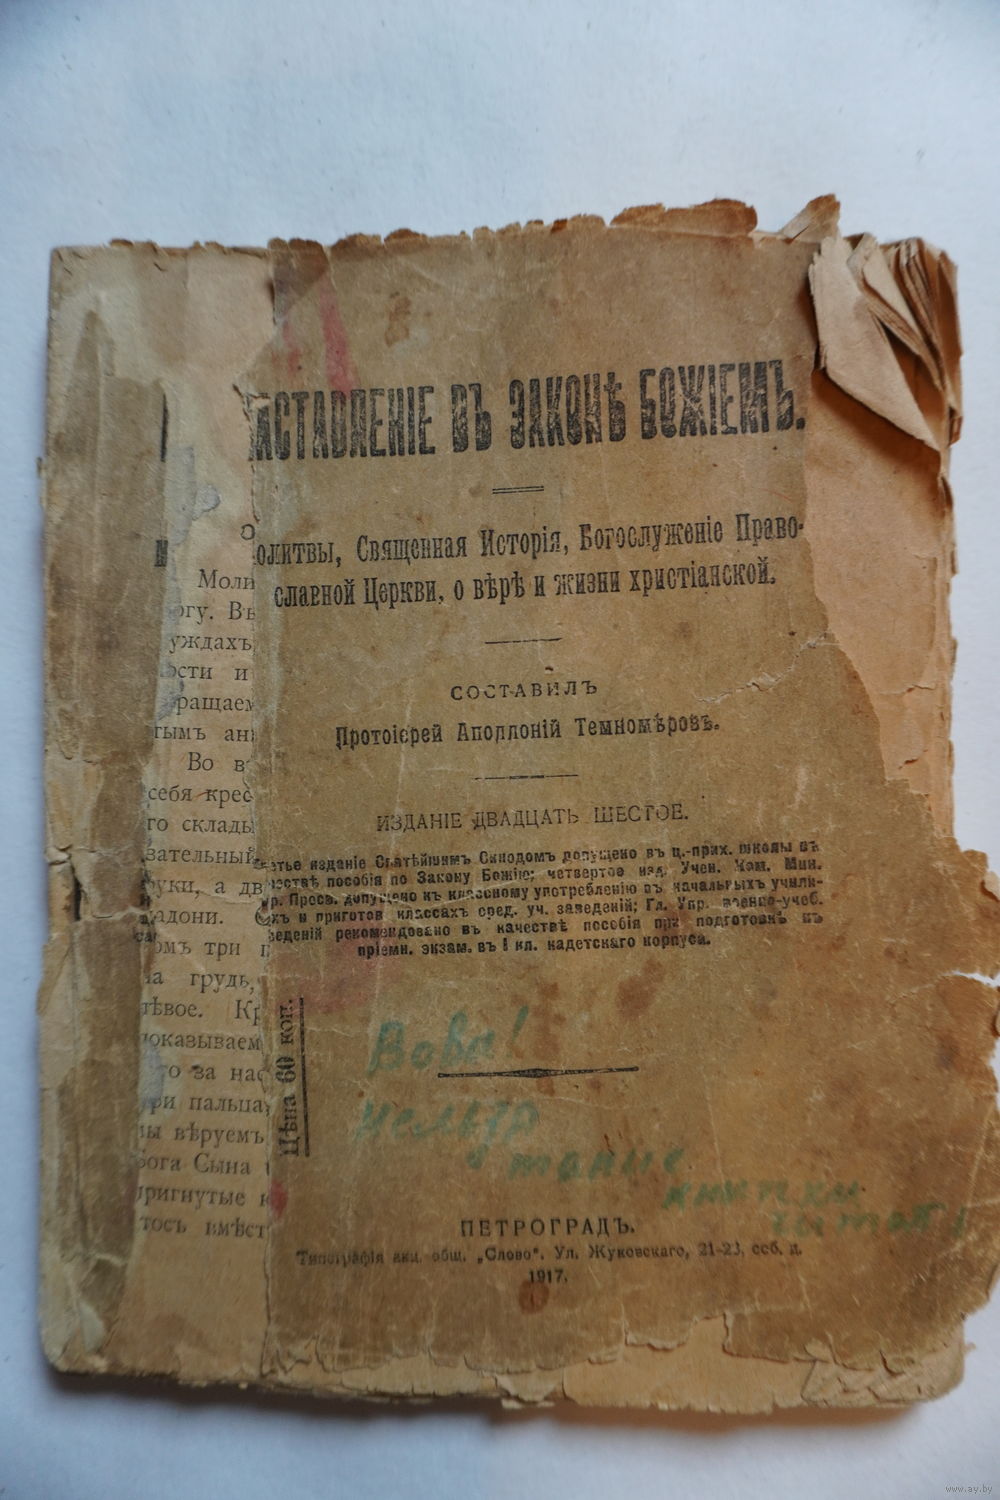 АСТАВЛЕНІЕ ВЪ ЗАКОНѢ БОЖІЕМЪ.
ОЛИТВЫ, Священная Исторія, Богослуженіе Право-
славной Церкви, о вѣрѣ и жизни христіанской.
СОСТАВИЛЪ
Протоіерей Аполлоній Темномѣровъ.
ИЗДАНІЕ ДВАДЦАТЬ ШЕСТОЕ.
етье изданіе Святѣйшимъ Синодомъ допущено въ ц.-прих. школы въ
чествѣ пособія по Закону Божію; четвертое изд. Учен. Ком. Мин.
ар. Просв. допущено къ классному употребленію въ начальныхъ учили-
хъ и приготов. классахъ сред. уч. заведеній; Гл. Упр. военно-учеб.
веденій рекомендовано въ качествѣ пособія при подготовкѣ къ
пріемн. экзам. въ I кл. кадетскаго корпуса.
Цѣна 60 коп.
Вова!
Нельзя
такие
книжки
читать!
ПЕТРОГРАДЪ.
Типографія акц. общ. „Слово“. Ул. Жуковскаго, 21-23, соб. д.
1917.
Моли
огу. Въ
уждахъ
ости и
ращаем
тымъ ан
Во в
себя крес
го склады
зательный
руки, а дв
ладони.
омъ три п
на грудь,
лѣвое. Кр
показываем
о за нас
ри пальца,
мы вѣруемъ
Бога Сына
пригнутые к
тось вмѣст
www.ay.by